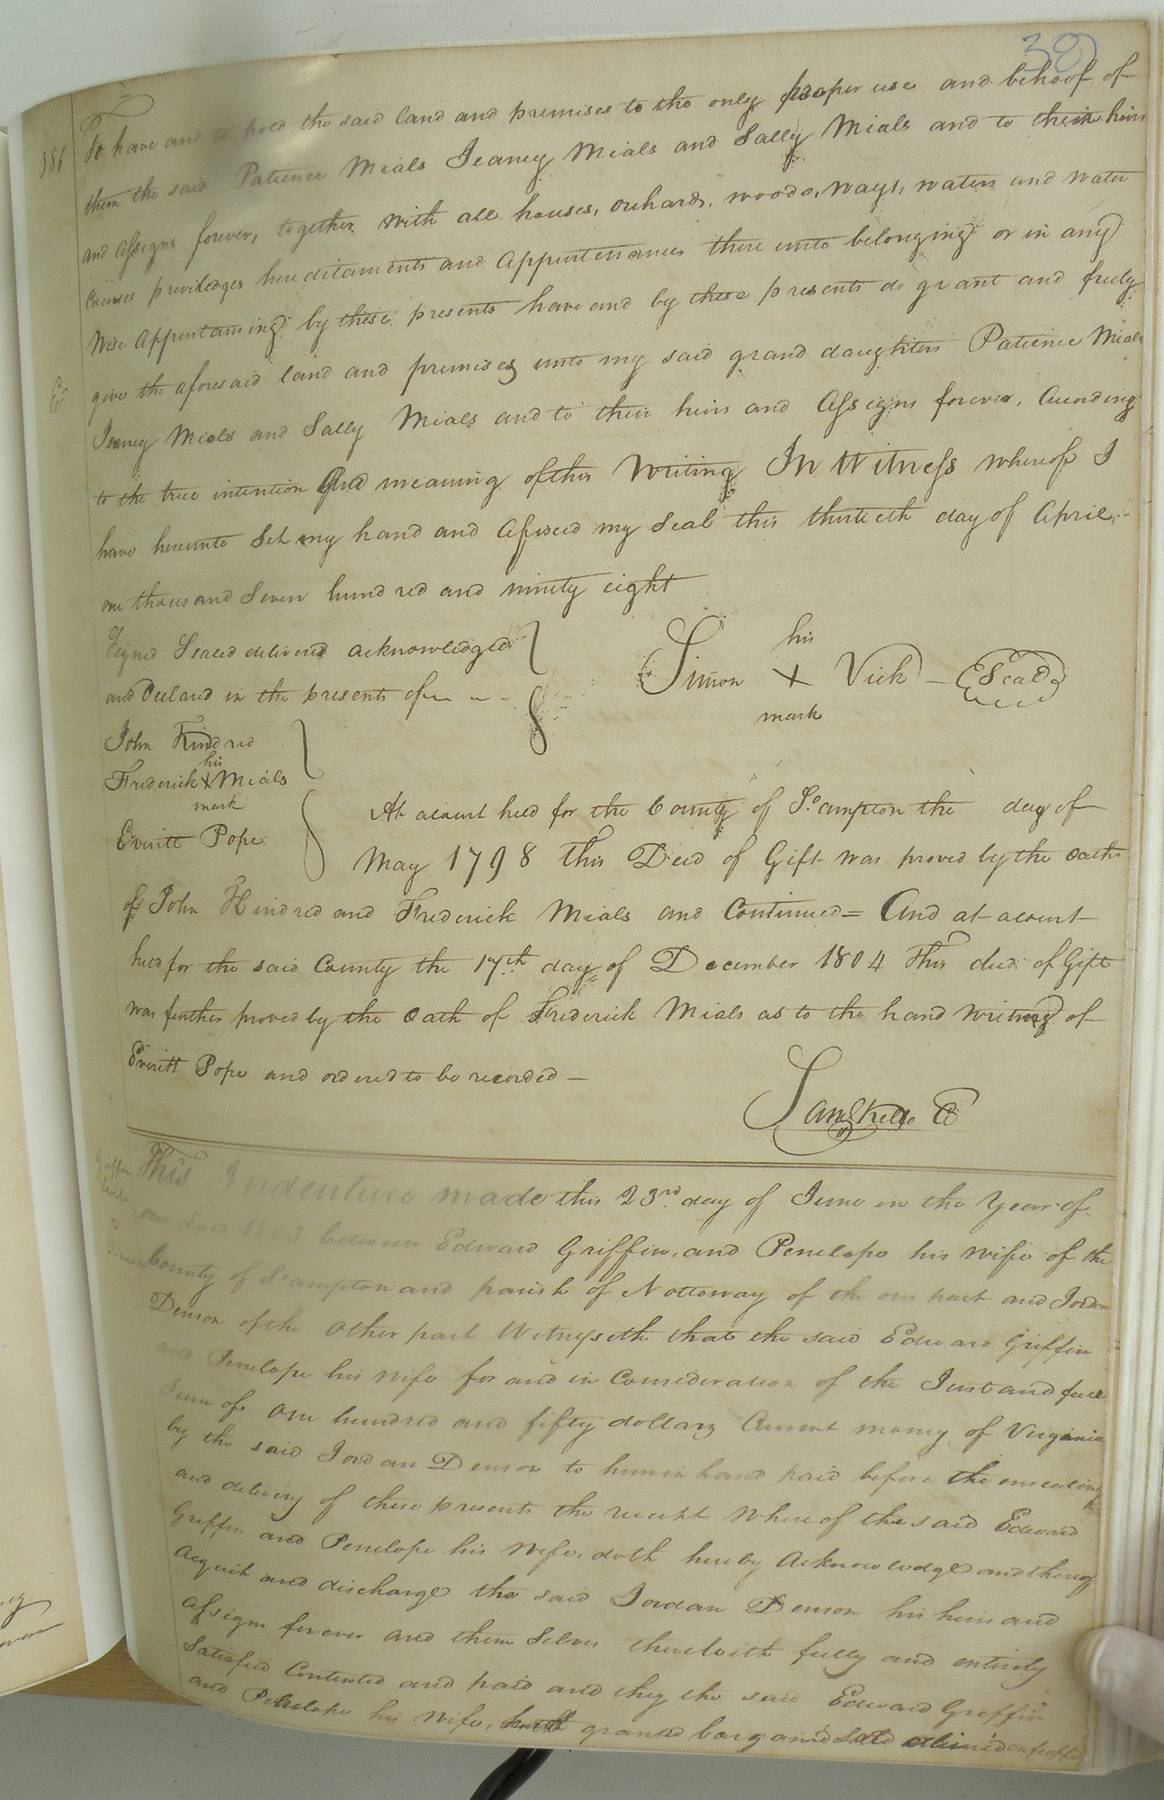 381
To have and to hold the said land and premises to the only proper use and behoof of
them the said Patience Mials Jeaney Mials and Sally Mials and to their heirs
and assigns forever, together with all houses, orchards, woods, ways, waters and water
Courses priviledges hereditaments and appurtenances there unto belonging or in any
Wise appurtaining by these presents have and by these presents do grant and freely
give the aforesaid land and premises unto my said grand daughters Patience Mials
Jeaney Mials and Sally Mials and to their heirs and assigns forever, according
to the true intention And meaning of this Writing In Witness whereof I
have hereunto Set my hand and afixed my Seal this thirtieth day of April
one thousand Seven hundred and ninety eight
Signed Sealed delivered acknowledged
and Declared in the presents of
Simon his X mark Vick (Seal)
John Kindred
Frederick his X mark Mials
Everitt Pope
At a court held for the County of So.ampton the day of
May 1798 This Deed of Gift was proved by the oaths
of John Kindred and Frederick Mials and Continued = And at a court
held for the said County the 17th day of December 1804 This deed of Gift
was further proved by the oath of Frederick Mials as to the hand writing of
Everitt Pope and ordered to be recorded —
Griffin
This Indenture made this 23rd day of June in the Year of
our Lord 1803 between Edward Griffin, and Penelope his wife of the
County of So.ampton and parish of Nottoway of the one part and Jordan
Denson of the other part Witnesseth that the said Edward Griffin
and Penelope his wife for and in Consideration of the Just and full
Sum of one hundred and fifty dollars Current money of Virginia
by the said Jordan Denson to him in hand paid before the ensealing
and delivery of these presents the receipt Where of the said Edward
Griffin and Penelope his Wife, doth hereby Acknowledge and thereof
Acquit and discharge the said Jordan Denson his heirs and
assigns forever and them Selves therewith fully and entirely
Satisfied Contented and paid and they the said Edward Griffin
and Penelope his Wife, hath granted bargained Sold aliened